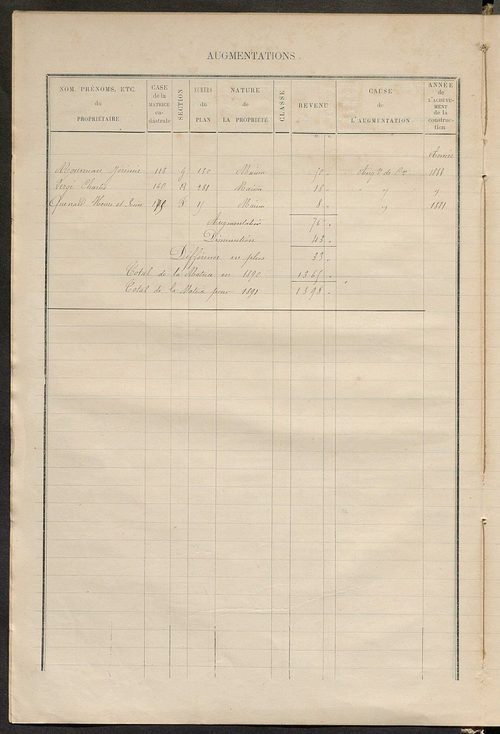 AUGMENTATIONS.
NOM, PRÉNOMS, ETC. du PROPRIÉTAIRE | CASE de la MATRICE cadastrale | SECTION | NUMÉRO du PLAN | NATURE de LA PROPRIÉTÉ | CLASSE | REVENU | CAUSE de L'AUGMENTATION | ANNÉE de L'ACHÈVEMENT de la construction
Jérémie 118 G 130 Maison 50 1888
Charles 140 B 281 Maison 18 " "
Maison 8 " 1881
Augmentation 76
Diminution 43
Différence en plus 33
Total de la Matrice en 1890 1365
Total de la Matrice pour 1891 1398